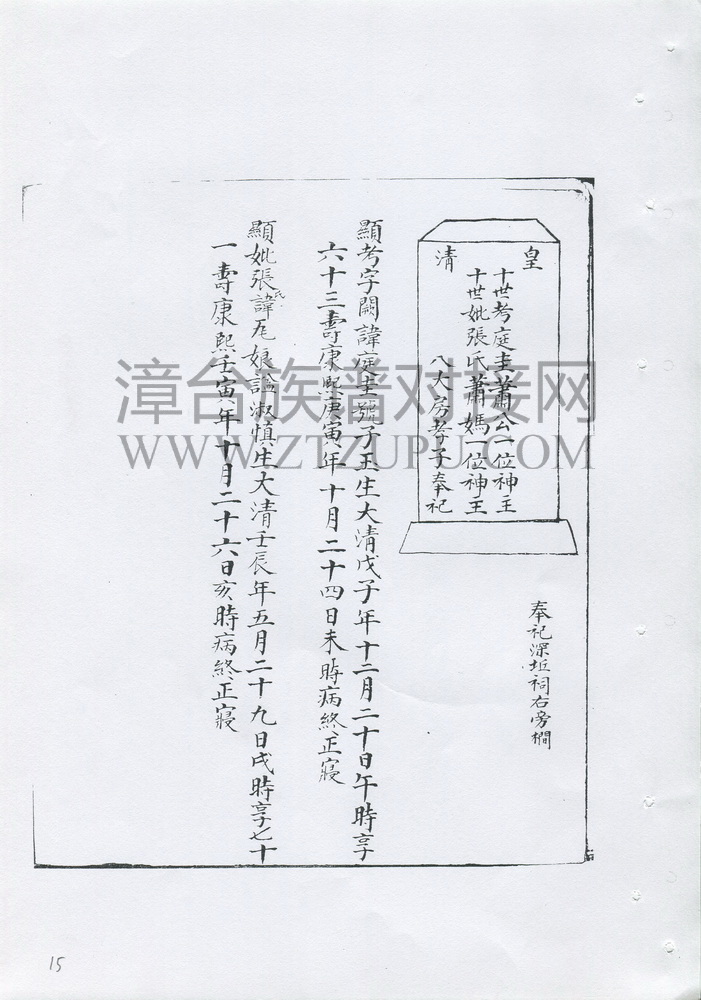 皇清
十世考庭圭蕭公一位神主
十世妣張氏蕭媽一位神主
八大房孝子奉祀
奉祀深坵祠右旁櫥
顯考字闕諱庭圭號子玉生大清戊子年十二月二十日午時享
六十三壽康熙庚寅年十月二十四日未時病終正寢
顯妣張氏諱尾娘謚淑慎生大清壬辰年五月二十九日戌時享七十
一壽康熙壬寅年十月二十六日亥時病終正寢
漳台族谱对接网
WWW.ZTZUPU.COM
15